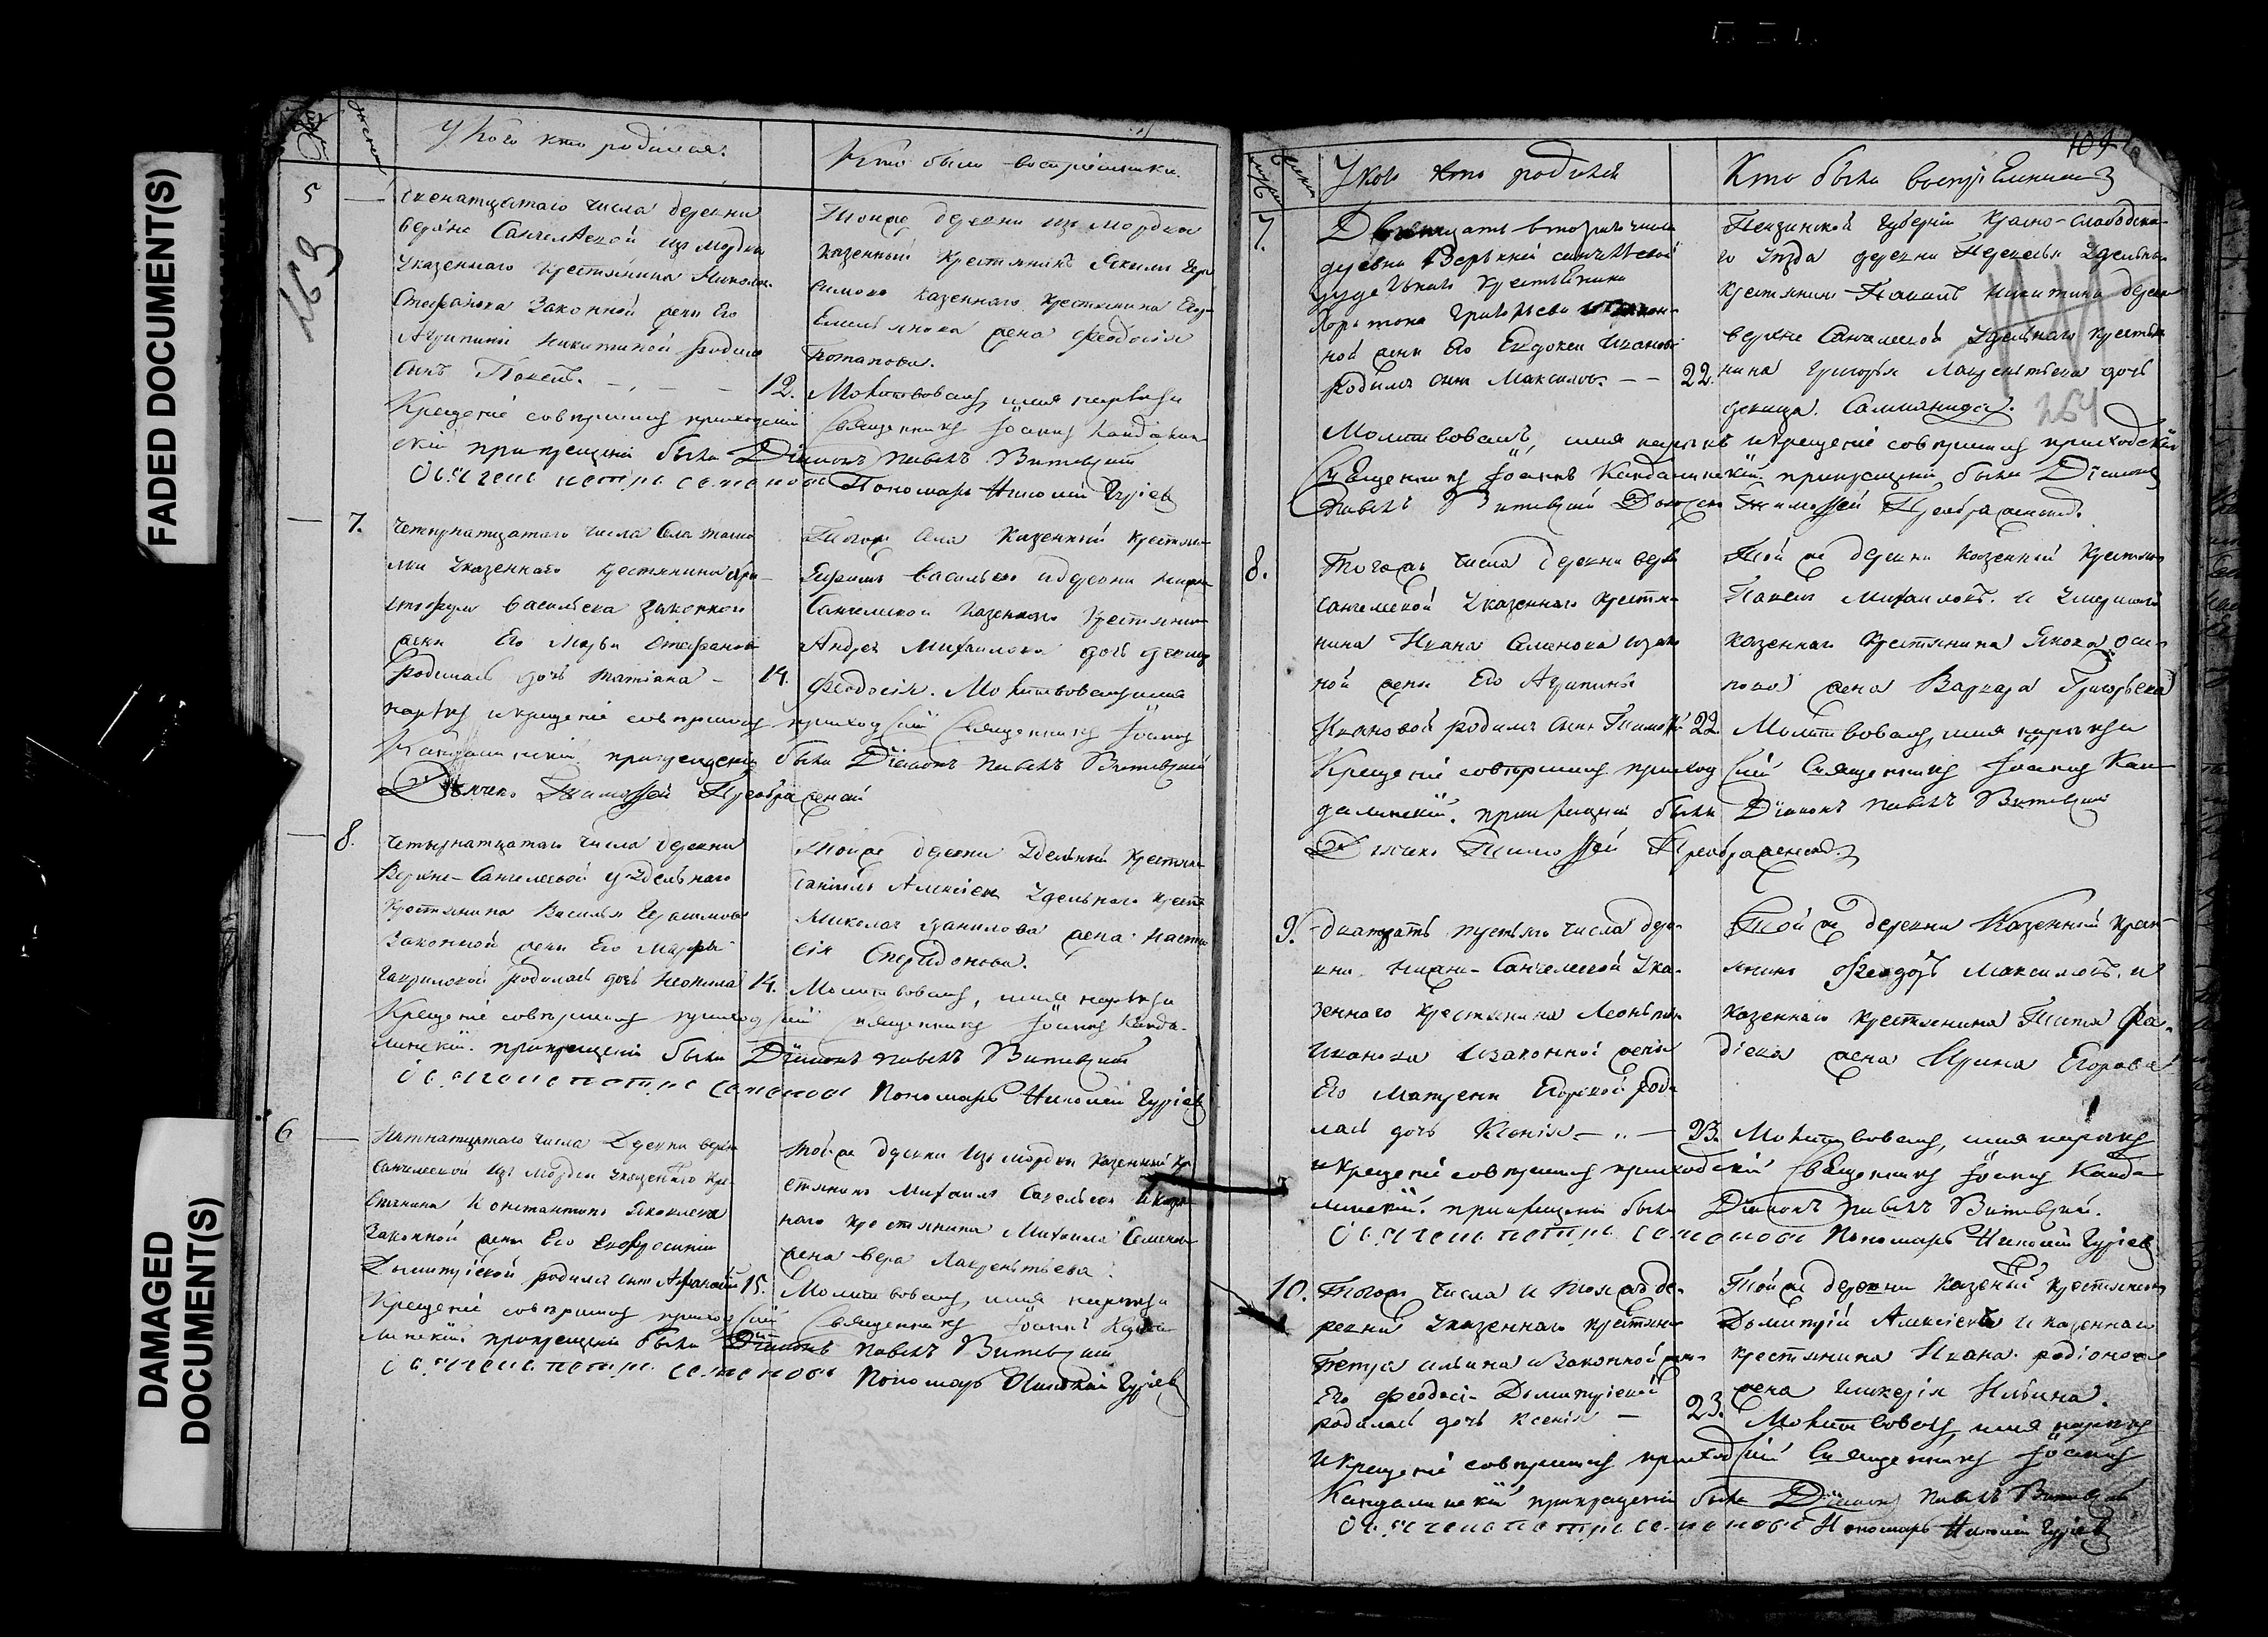 FADED DOCUMENT(S)
DAMAGED
DOCUMENT(S)
У кого кто родился.
Кто были восприемники.
5
263
числа деревни
верхне Санчелеевской изъ мордвы
Указеннаго крестьянина Николая
Стефанова Законной жены Его
Агрипины Никитиной родился
сынъ Павелъ. 12.
Тояже деревни изъ мордвы
казенный крестьянинъ
казеннаго крестьянина
Емельянова жена Феодосія
Потапова.
Молитвовалъ, имя нареклъ и
Крещеніе совершилъ приходскій Священникъ Іоаннъ Кандалин-
скій при крещеніи были Діаконъ Павелъ Витевскій
Пономарь Николай Гуріевъ
7.
Четырнатцатаго числа Села
Указеннаго крестьянина
Васильева законной
жены Его Марьи Стефановой
родилась дочь Татіана - 14.
Тогоже Села Казенный крестьянинъ
Васильевъ и деревни нижне
Санчелеевской казеннаго крестьянина
Андрея Михайлова дочь девица
Феодосія. Молитвовалъ имя
нареклъ и крещеніе совершилъ приходскій Священникъ Іоаннъ
Кандалинскій при крещеніи были Діаконъ Павелъ Витевскій
Дьячекъ Тимофей Преображенскій
8.
Четырнатцатаго числа деревни
Верхне-Санчелеевской Удельнаго
крестьянина Василья Герасимова
Законной жены Его Марфы
Гавриловой родилась дочь Неонила 14.
Тояже деревни Удельный крестьянинъ
Алексіевъ Удельнаго крест
Николая Данилова жена
Спиридонова.
Молитвовалъ, имя нареклъ и
Крещеніе совершилъ приходскій Священникъ Іоаннъ Канда-
линскій. при крещеніи были Діаконъ Павелъ Витевскій
Пономарь Николай Гуріевъ
6
Пятнатцатаго числа Деревни верхне
Санчелеевской изъ Мордвы Указеннаго кре-
стьянина Константина Яковлева
Законной жены Его Евфросиніи
Дмитріевой родился сынъ Афанасій 15.
Тойже деревни изъ мордвы казенный кр
естьянинъ Михаилъ Савельевъ и казен
наго крестьянина Михаила Семенова
жена Вера Лаврентьева.
Молитвовалъ, имя нареклъ и
Крещеніе совершилъ приходскій Священникъ Іоаннъ Канда
линскій. при крещеніи были Діаконъ Павелъ Витевскій
Пономарь Николай Гуріевъ
109
У кого кто родился
Кто были восприемники
7.
Дватцать втораго числа
деревни Верхней санчелеевской
удельнаго крестьянина
Харитона Григорьева и закон-
ной жены Его Евдокеи Ивановой
родился сынъ Максимъ. - - 22.
Пензинской Губерніи Красно-Слободска-
го Уезда деревни Удельный
крестьянинъ Никитинъ деревни
верхне Санчелеевской Удельнаго крестья
нина Григорья Лаврентьева дочь
девица. Саломанида.
254
Молитвовалъ, имя нареклъ и крещеніе совершилъ приходскій
Священникъ Іоаннъ Кандалинскій. при крещеніи были Діаконъ
Павелъ Витевскій Дьячекъ Тимофей Преображенскій.
8.
Тогожъ числа деревни верхне
санчелеевской Указеннаго крестья-
нина Ивана Семенова и закон
ной жены Его Агрипины
Ивановой родился сынъ Тимофей 22.
Той же деревни казенный крестьянинъ
Павелъ Михайловъ. и умершаго
казеннаго крестьянина Якова Оси-
пова жена Варвара Григорьева
Молитвовалъ, имя нареклъ и
Крещеніе совершилъ приходскій Священникъ Іоаннъ Кан-
далинскій. при крещеніи были Діаконъ Павелъ Витевскій
Дьячекъ Тимофей Преображенскій
9.
дватцать третьяго числа дере-
вни нижне-Санчелеевской Ука-
зеннаго крестьянина Леонтья
Иванова и законной жены
Его Матрены Егоровой роди
лась дочь Ксенія - 23.
Той же деревни Казенный крест-
янинъ Феодоръ Максимовъ. и
казеннаго крестьянина Тита Фа-
діева жена Ирина Егорова
Молитвовалъ, имя нареклъ
и Крещеніе совершилъ приходскій Священникъ Іоаннъ Канда-
линскій. при крещеніи были Діаконъ Павелъ Витевскій.
Пономарь Николай Гуріевъ
10.
Тогожъ числа и тояжъ де-
ревни Указеннаго крестьянина
Петра Ильина и Законной жены
Его Феодосіи Дмитріевой
родилась дочь Ксенія - 23.
Той же деревни казенный крестьянинъ
Дмитрій Алексіевъ и казеннаго
крестьянина Ивана Родіонова
жена Гликерія Ильина.
Молитвовалъ, имя нареклъ
и Крещеніе совершилъ приходскій Священникъ Іоаннъ
Кандалинскій при крещеніи были Діаконъ Павелъ Витевскій
Пономарь Николай Гуріевъ